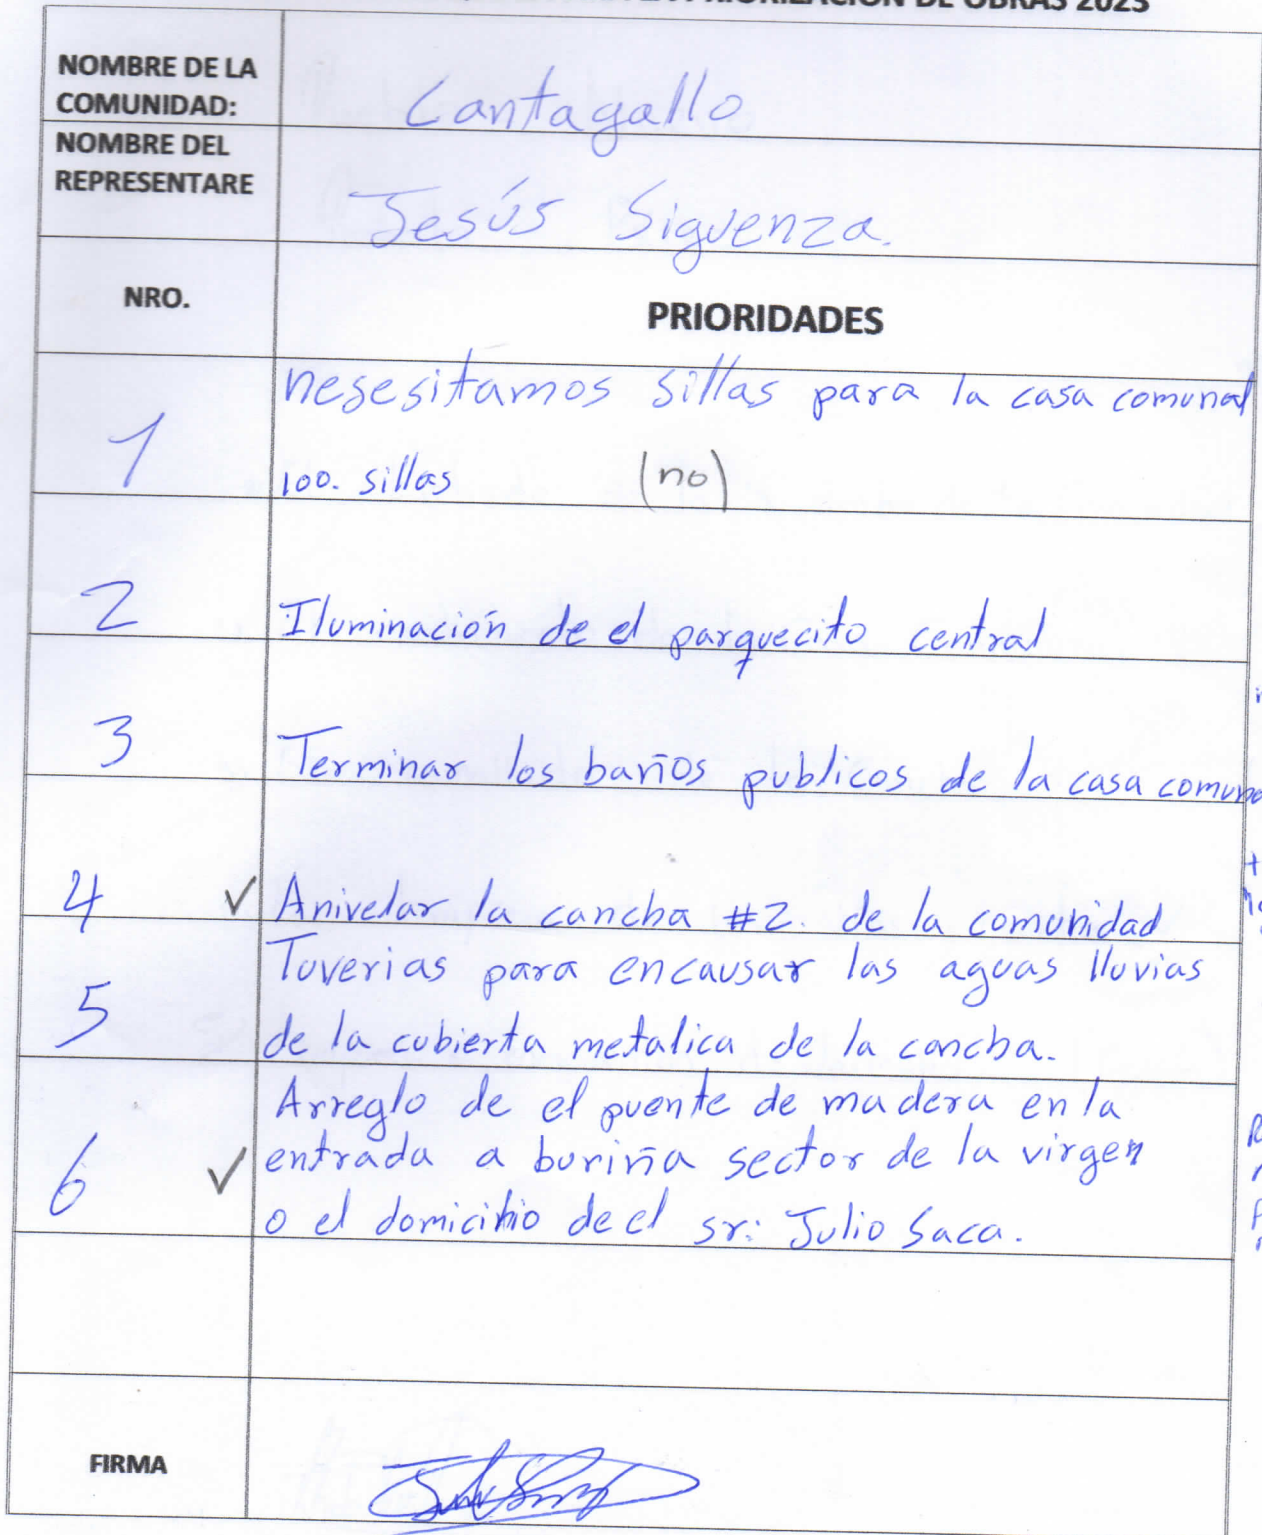 PRIORIZACIÓN DE OBRAS 2023
NOMBRE DE LA
COMUNIDAD:
Cantagallo
NOMBRE DEL
REPRESENTARE
Jesús Siguenza.
NRO.
PRIORIDADES
1
nesesitamos sillas para la casa comunal
100. sillas (no)
2
Iluminación de el parquecito central
3
Terminar los baños publicos de la casa comuna
4 ✓
Anivelar la cancha #2. de la comunidad
5
Tuverias para encausar las aguas lluvias
de la cubierta metalica de la cancha.
6 ✓
Arreglo de el puente de madera en la
entrada a buriña sector de la virgen
o el domicilio de el sr: Julio Saca.
FIRMA